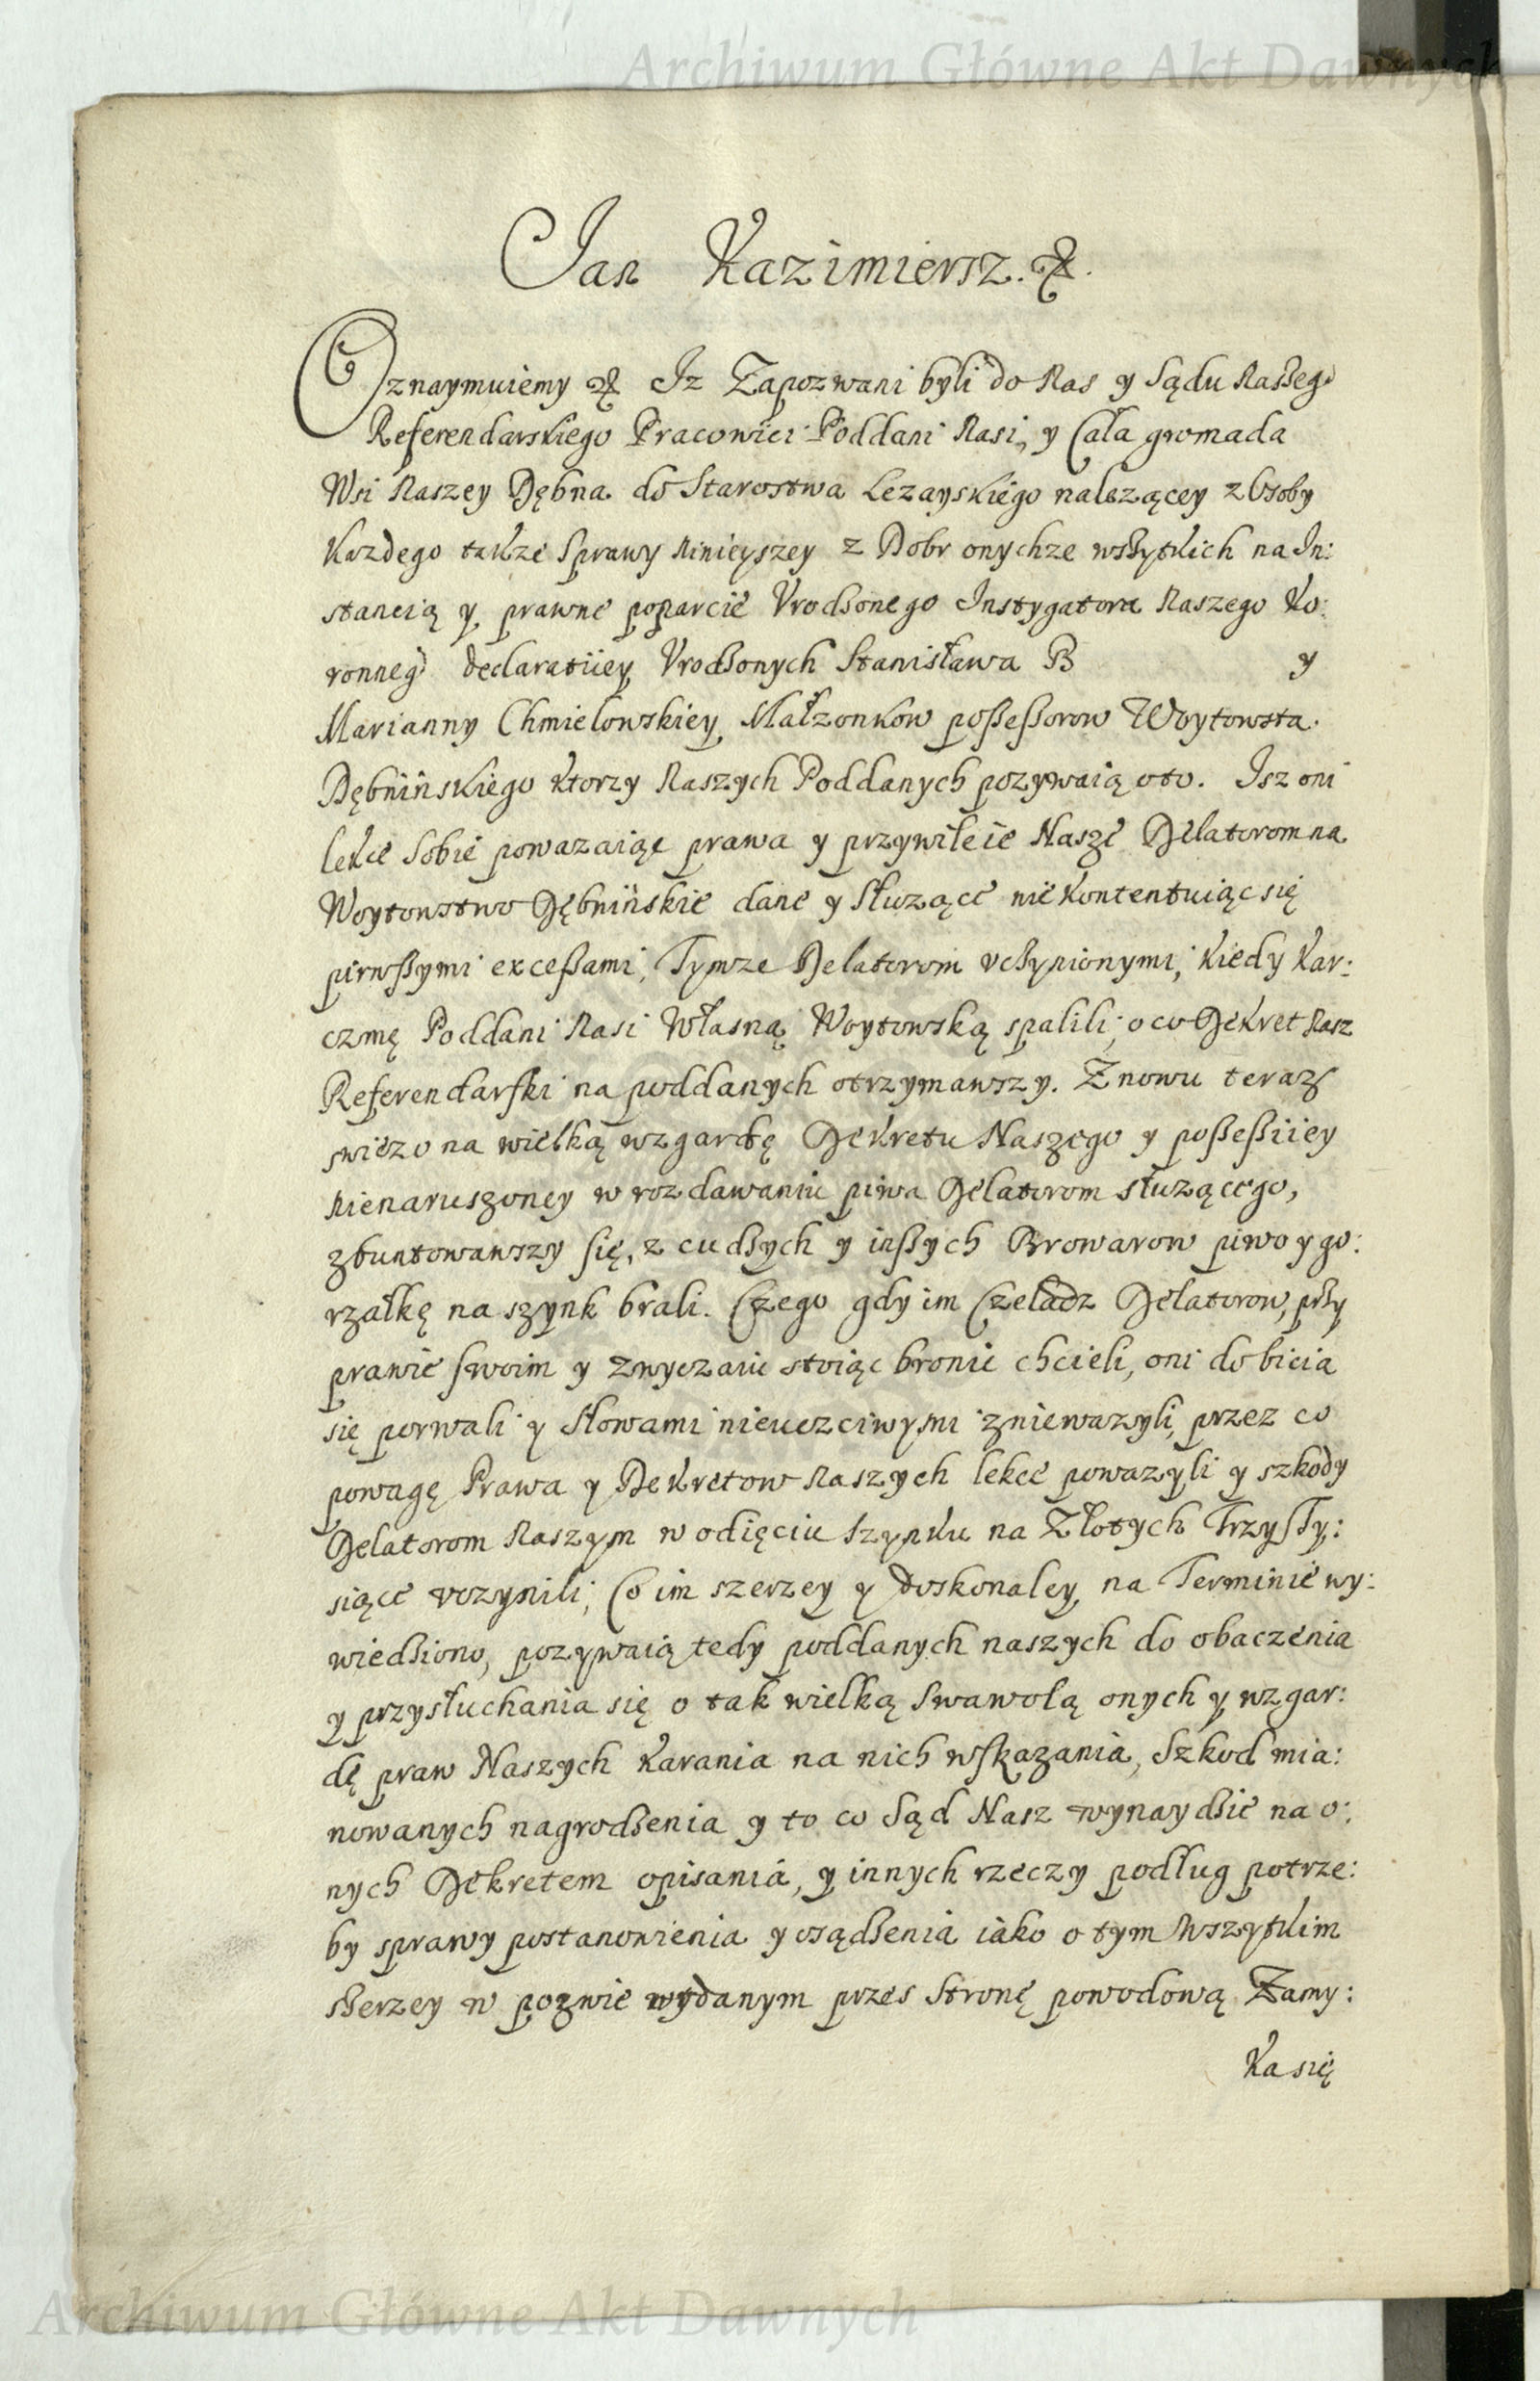 Archiwum Główne Akt Dawnych
Jan Kazimiersz. &.
Oznaymuiemy & Iz Zapozwani byli do Nas y Sądu Naszego
Referendarskiego Pracowici Poddani Nasi, y Cała gromada
Wsi Naszey Dębna do Starostwa Lezayskiego nalezącey z Osoby
Kazdego takze Sprawy Ninieyszey z Dobr onychze wszytkich na In:
stancią y prawne poparcie Vrodzonego Instygatora Naszego Ko:
ronnego declaratiiey Vrodzonych Stanisława B y
Marianny Chmielowskiey Małzonkow possessorow Woytowsta
Dębnińskiego ktorzy Naszych Poddanych pozywaią oto. Isz oni
lekce Sobie powazaiąc prawa y przywileie Nasze Delatorom na
Woytowstwo Dębnińskie dane y Słuzące niekontentuiąc się
pirwszymi excessami, Tymze Delatorom vczynionymi, kiedy kar:
czmę Poddani Nasi Własną Woytowską spalili, o co Dekret Nasz
Referendarski na poddanych otrzymawszy. Znowu teraz
swiezo na wielką wzgardę Dekretu Naszego y possessiiey
Nienaruszoney w rozdawaniu piwa Delatorom słuzącego,
zbuntowawszy się, z cudzych y inszych Browarow piwo y go:
rzałkę na szynk brali. Czego gdy im Czeladz Delatorow, przy
prawie swoim y zwyczaiu stoiąc bronic chcieli, oni do bicia
się porwali y Słowami nieuczciwymi zniewazyli, przez co
powagę Prawa y Dekretow Naszych lekce powazyli y szkody
Delatorom Naszym w odięciu Szynku na Złotych Trzy Ty:
siące vczynili, Co im szerzey y doskonaley na Terminie wy:
wiedziono, pozywaią tedy poddanych naszych do obaczenia
y przysłuchania się o tak wielką Swawolą onych y wzgar:
dę praw Naszych karania na nich wskazania, Szkod mia:
nowanych nagrodzenia y to co Sąd Nasz wynaydzie na o:
nych Dekretem opisania, y innych rzeczy podług potrze:
by sprawy postanowienia y osądzenia iako o tym Wszytkim
szerzey w pozwie wydanym przes Stronę powodową Zamy:
ka się
Archiwum Główne Akt Dawnych